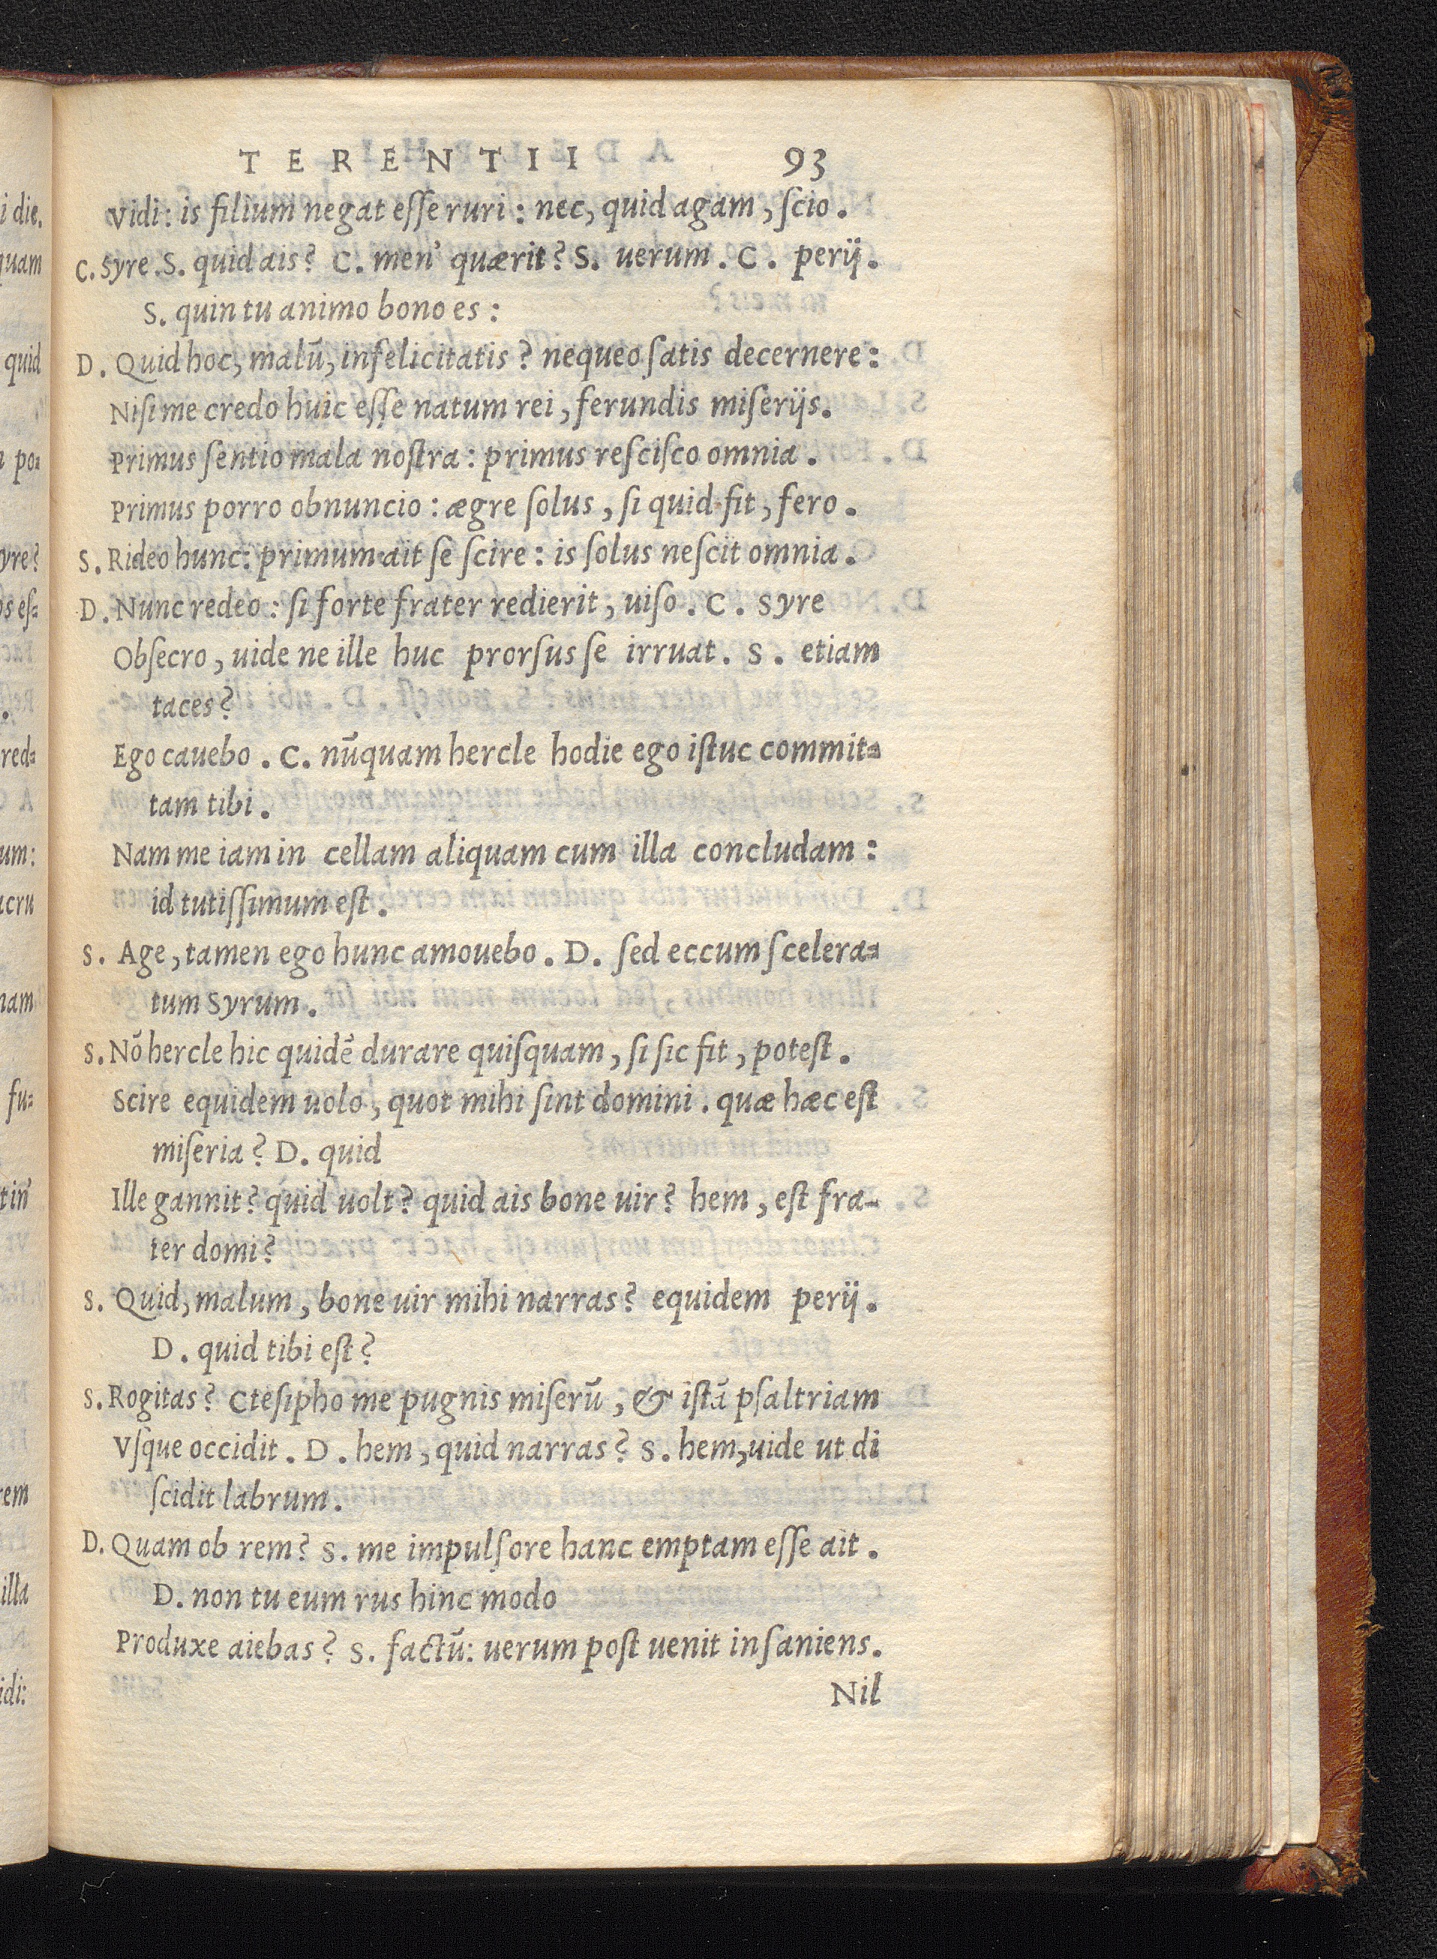 TERENTII 93
Vidi: is filium negat eſſe ruri: nec, quid agam, ſcio.
C. Syre. S. quid ais? C. men' quærit? S. uerum. C. perij.
S. quin tu animo bono es:
D. Quid hoc, malũ, infelicitatis? nequeo ſatis decernere:
Niſi me credo huic eſſe natum rei, ferundis miſerijs.
Primus ſentio mala noſtra: primus reſciſco omnia.
Primus porro obnuncio: ægre ſolus, ſi quid fit, fero.
S. Rideo hunc: primum ait ſe ſcire: is ſolus neſcit omnia.
D. Nunc redeo: ſi forte frater redierit, uiſo. C. Syre
Obſecro, uide ne ille huc prorſus ſe irruat. S. etiam
taces?
Ego cauebo. C. nũquam hercle hodie ego iſtuc commit-
tam tibi.
Nam me iam in cellam aliquam cum illa concludam:
id tutiſſimum eſt.
S. Age, tamen ego hunc amouebo. D. ſed eccum ſcelera-
tum Syrum.
S. Nõ hercle hic quidẽ durare quiſquam, ſi ſic fit, poteſt.
Scire equidem uolo, quot mihi ſint domini. quæ hæc eſt
miſeria? D. quid
Ille gannit? quid uolt? quid ais bone uir? hem, eſt fra-
ter domi?
S. Quid, malum, bone uir mihi narras? equidem perij.
D. quid tibi eſt?
S. Rogitas? Cteſipho me pugnis miſerũ, & iſtã pſaltriam
Vſque occidit. D. hem, quid narras? S. hem, uide ut di
ſcidit labrum.
D. Quam ob rem? S. me impulſore hanc emptam eſſe ait.
D. non tu eum rus hinc modo
Produxe aiebas? S. factũ: uerum poſt uenit inſaniens.
Nil